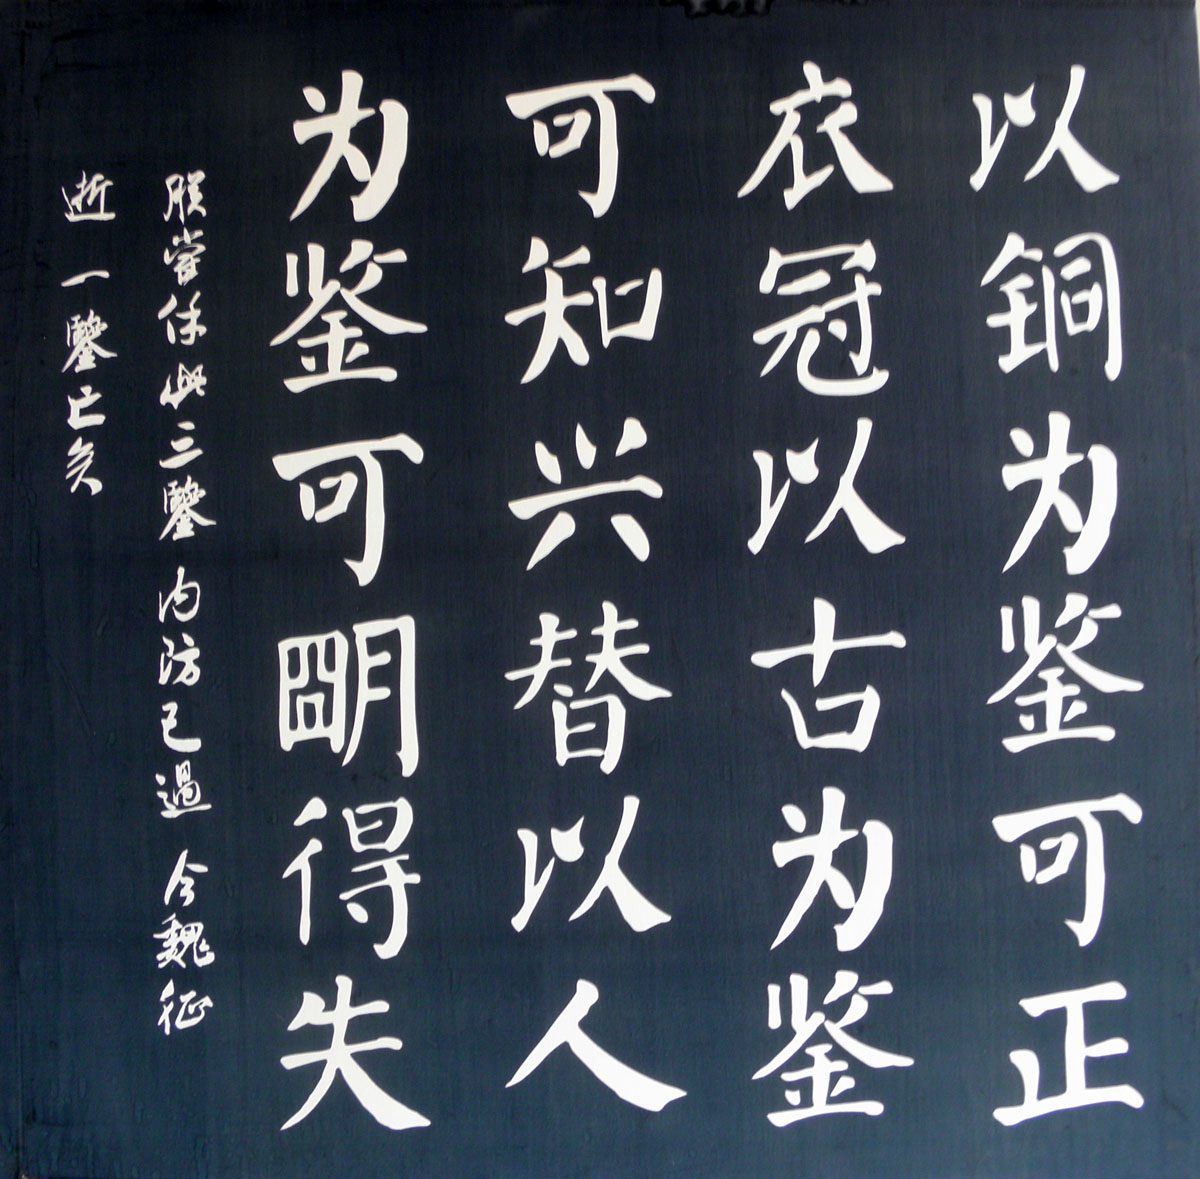 以铜为鉴可正
衣冠以古为鉴
可知兴替以人
为鉴可明得失
朕尝保此三鑒内防己過今魏征
逝一鑒亡矣